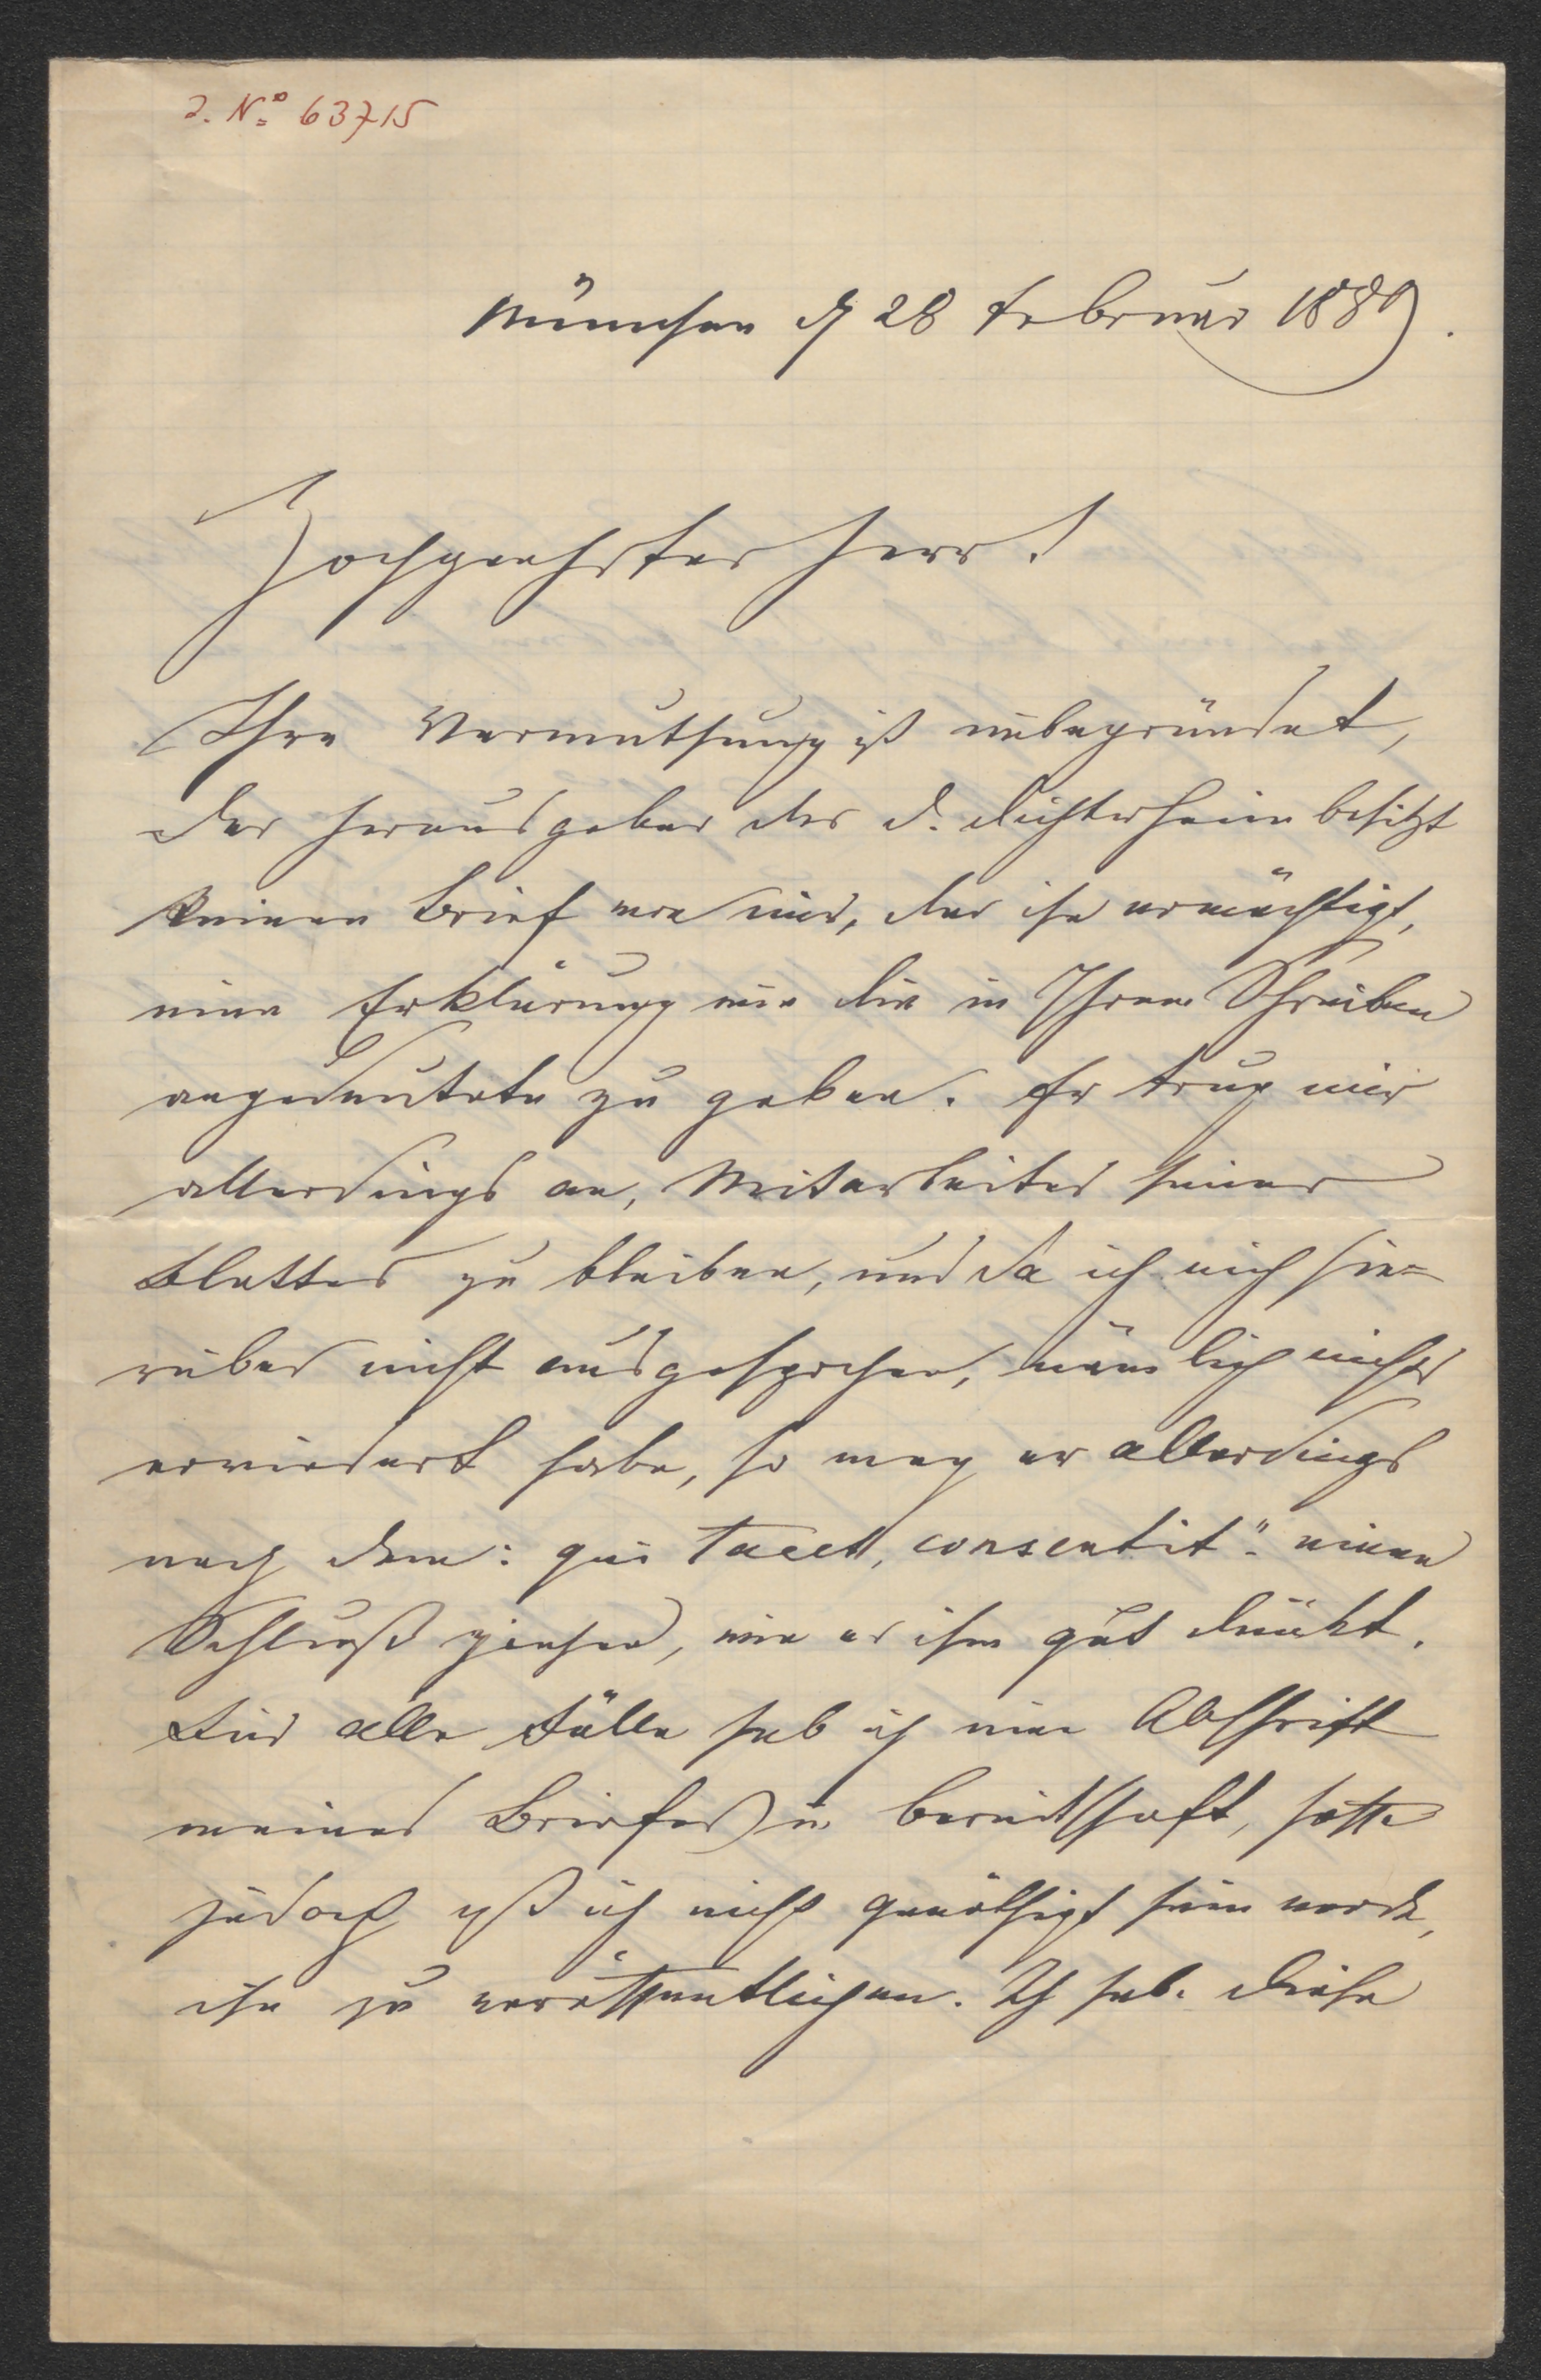 J. No 63715
München d 28 Februar 1889.
Hochgeehrter Herr!
Ihre Vermuthung ist unbegründet,
der Herausgeber des D. Dichterheim besitzt
keinen Brief von mir, der ihn ermächtigt,
eine Erklärung wie die in Ihrem Schreiben
angedeutete zu geben. Er trug mir
allerdings an, Mitarbeiter seines
Blattes zu bleiben, und da ich mich hie-
rüber nicht ausgesprochen, nämlich nichts
erwiedert habe, so mag er allerdings
nach dem: qui tacet, consentit" einen
Schluß ziehen, wie er ihm gut dünkt.
Für alle Fälle hab ich eine Abschrift
meines Briefes in Bereitschaft, hoffe
jedoch, daß ich nicht genöthigt sein werde,
ihn zu veröffentlichen. Ich hab. diese